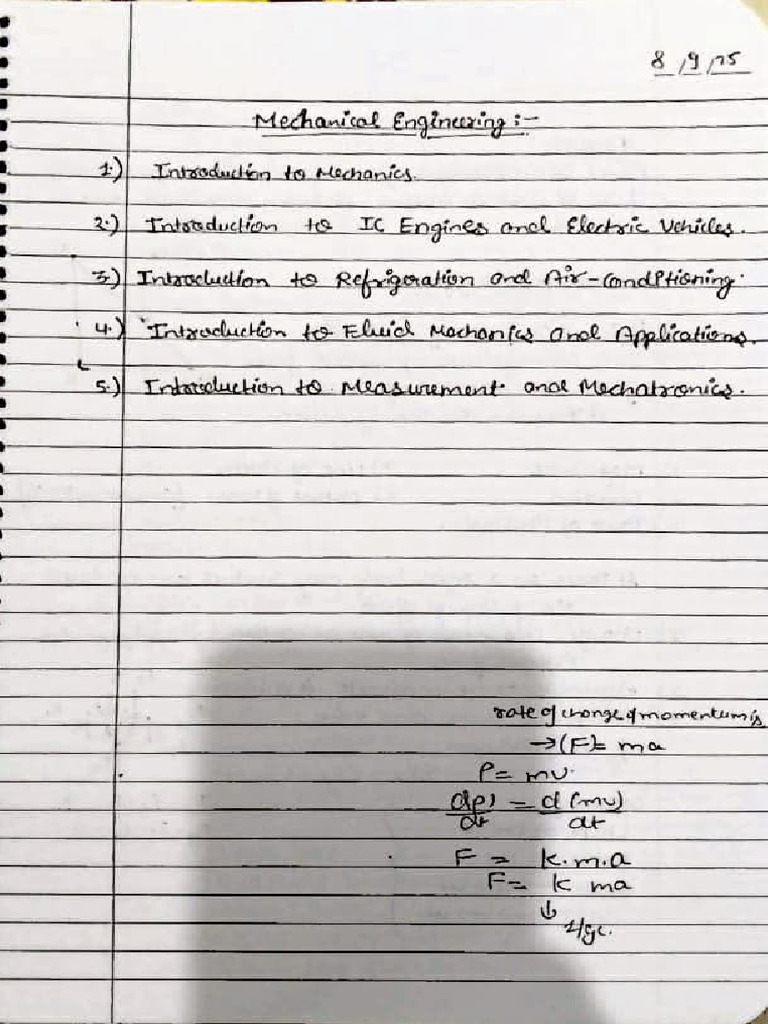 8/9/25
Mechanical Engineering :-
1.) Introduction to Mechanics.
2.) Introduction to IC Engines and Electric Vehicles.
3.) Introduction to Refrigeration and Air-Conditioning.
4.) Introduction to Fluid Mechanics and Applications.
5.) Introduction to Measurement and Mechatronics.
rate of change of momentum is
→(F)= ma
P= mv
d(p)/dt = d(mv)/dt
F = k.m.a
F= k ma
↓
1/gc.